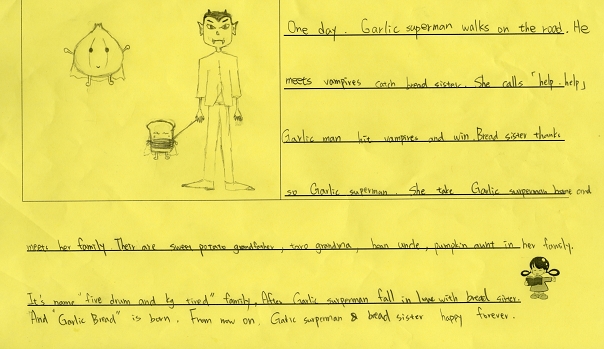 One day. Garlic superman walks on the road. He
meets vampires catch bread sister. She calls「help.help」
Garlic man hit vampires and win. Bread sister thanks
so Garlic superman. She take Garlic surperman home and
meets her family. Their are sweet potato grandfather, taro grandma, bean uncle, pumpkin aunt in her family.
It's name "five drum and kg tired" family. After Garlic surperman fall in love with bread sister.
And "Garlic Bread" is born. From now on. Galic surperman & bread sister happy forever.